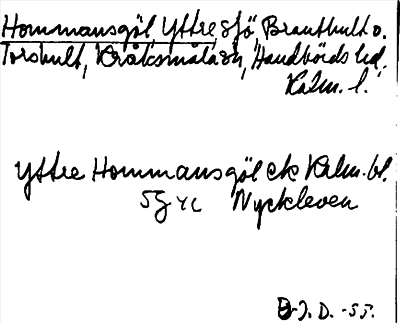 Hommansgöl, Yttre, sjö, Brantbult o.
Torsbult, Kråksmåla sn, Handbörds hd.
Kalm. l.
Yttre Hommansgöl ek Kalm. bl.
5G 4c Nyckleven
J. D. -55.